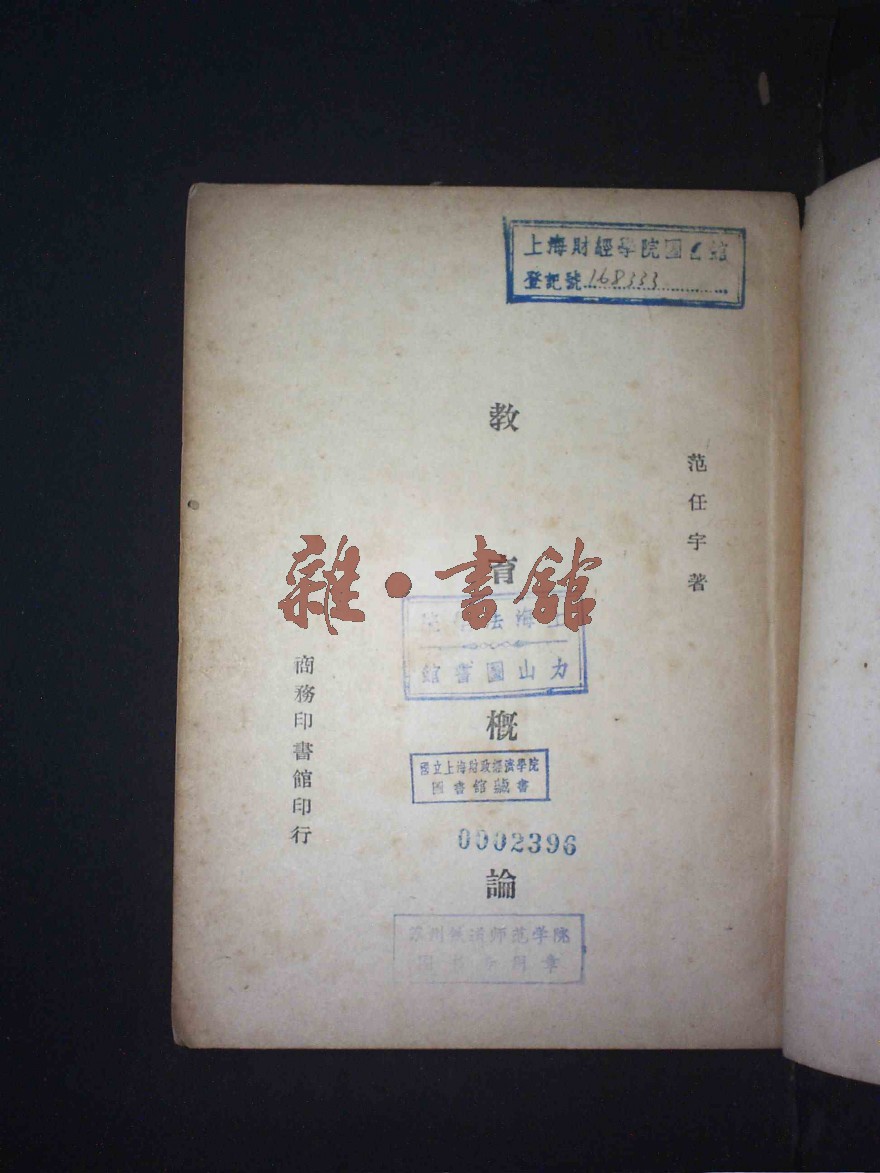 上海財經學院圖書館
登記號 168333
范任宇著
教育概論
雜·書館
上海法學院
力山圖書館
國立上海財政經濟學院
圖書館藏書
0002396
苏州铁道师范学院
商務印書館印行